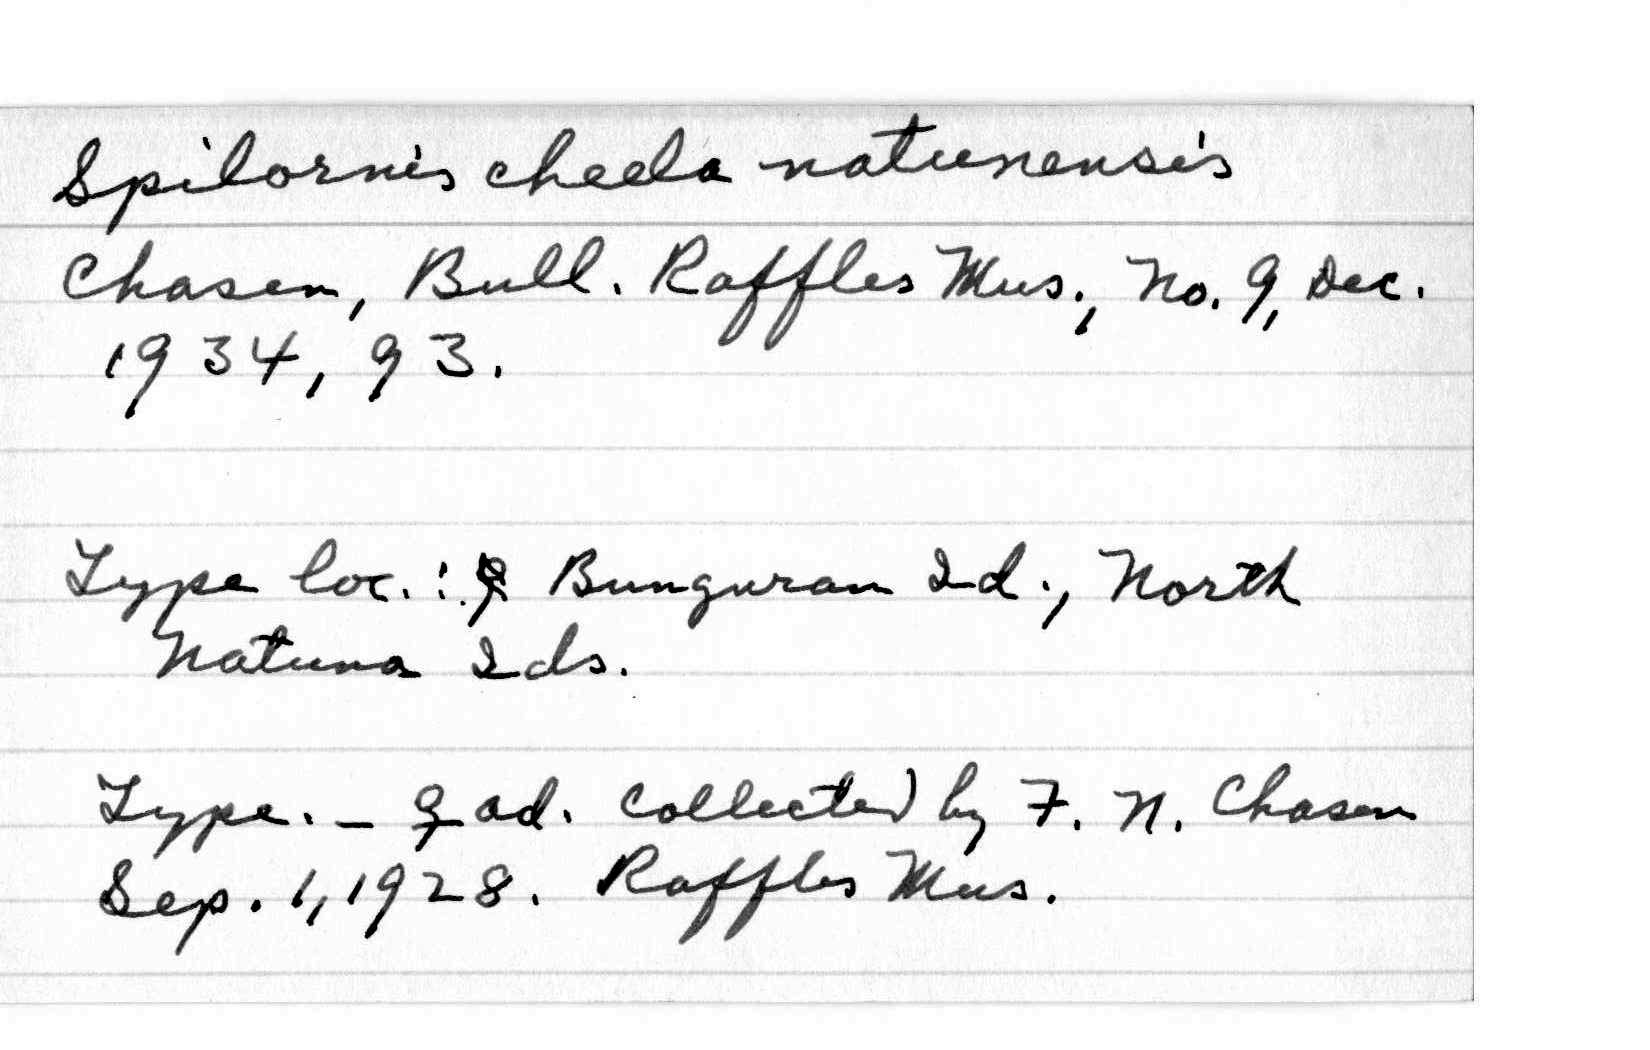 Spilornis cheela natunensis
Chasen, Bull. Raffles Mus., No. 9, Dec.
1934, 93.
Type loc.: Bunguran Id., North
Natuna Ids.
Type. – ♀ ad. collected by F. N. Chasen
Sep. 1, 1928. Raffles Mus.